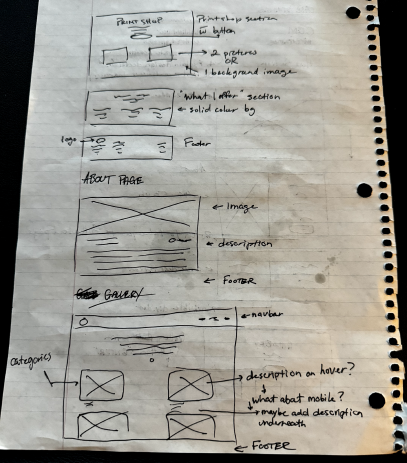 PRINT SHOP
Print shop section
w button
2 pictures
OR
1 background image
"What I offer" section
solid color bg
logo
Footer
ABOUT PAGE
Image
description
FOOTER
GALLERY
navbar
categories
description on hover?
what about mobile?
maybe add description
underneath
FOOTER